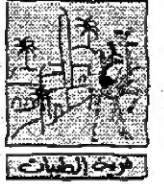 قرية الطيبات